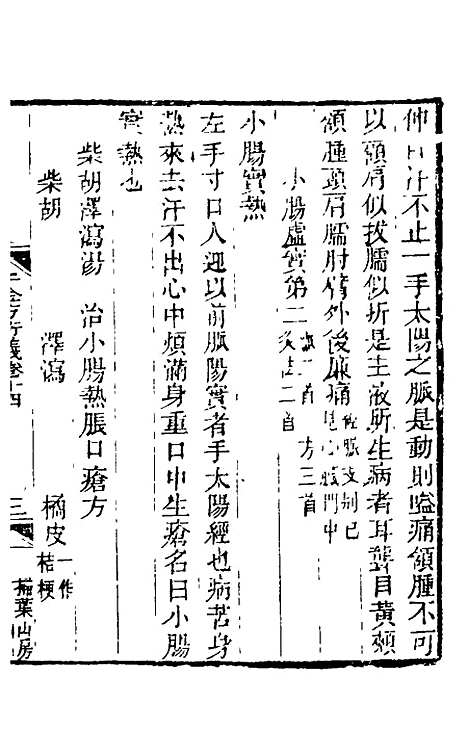 汗不止一手太陽之脈是動則嗌痛頷腫不可
以顧肩似拔臑似折是主液所生病者耳聾目黃頰
頷腫頸肩臑肘臂外後廉痛
小腸虛實第二 方三首 二首
小腸實熱
左手寸口人迎以前脈陽實者手太陽經也病苦身
熱來去汗不出心中煩滿身重口中生瘡名曰小腸
實熱也
柴胡澤瀉湯 治小腸熱脹口瘡方
柴胡 澤瀉 橘皮一作桔梗
千金方衍義卷十四 三 掃葉山房